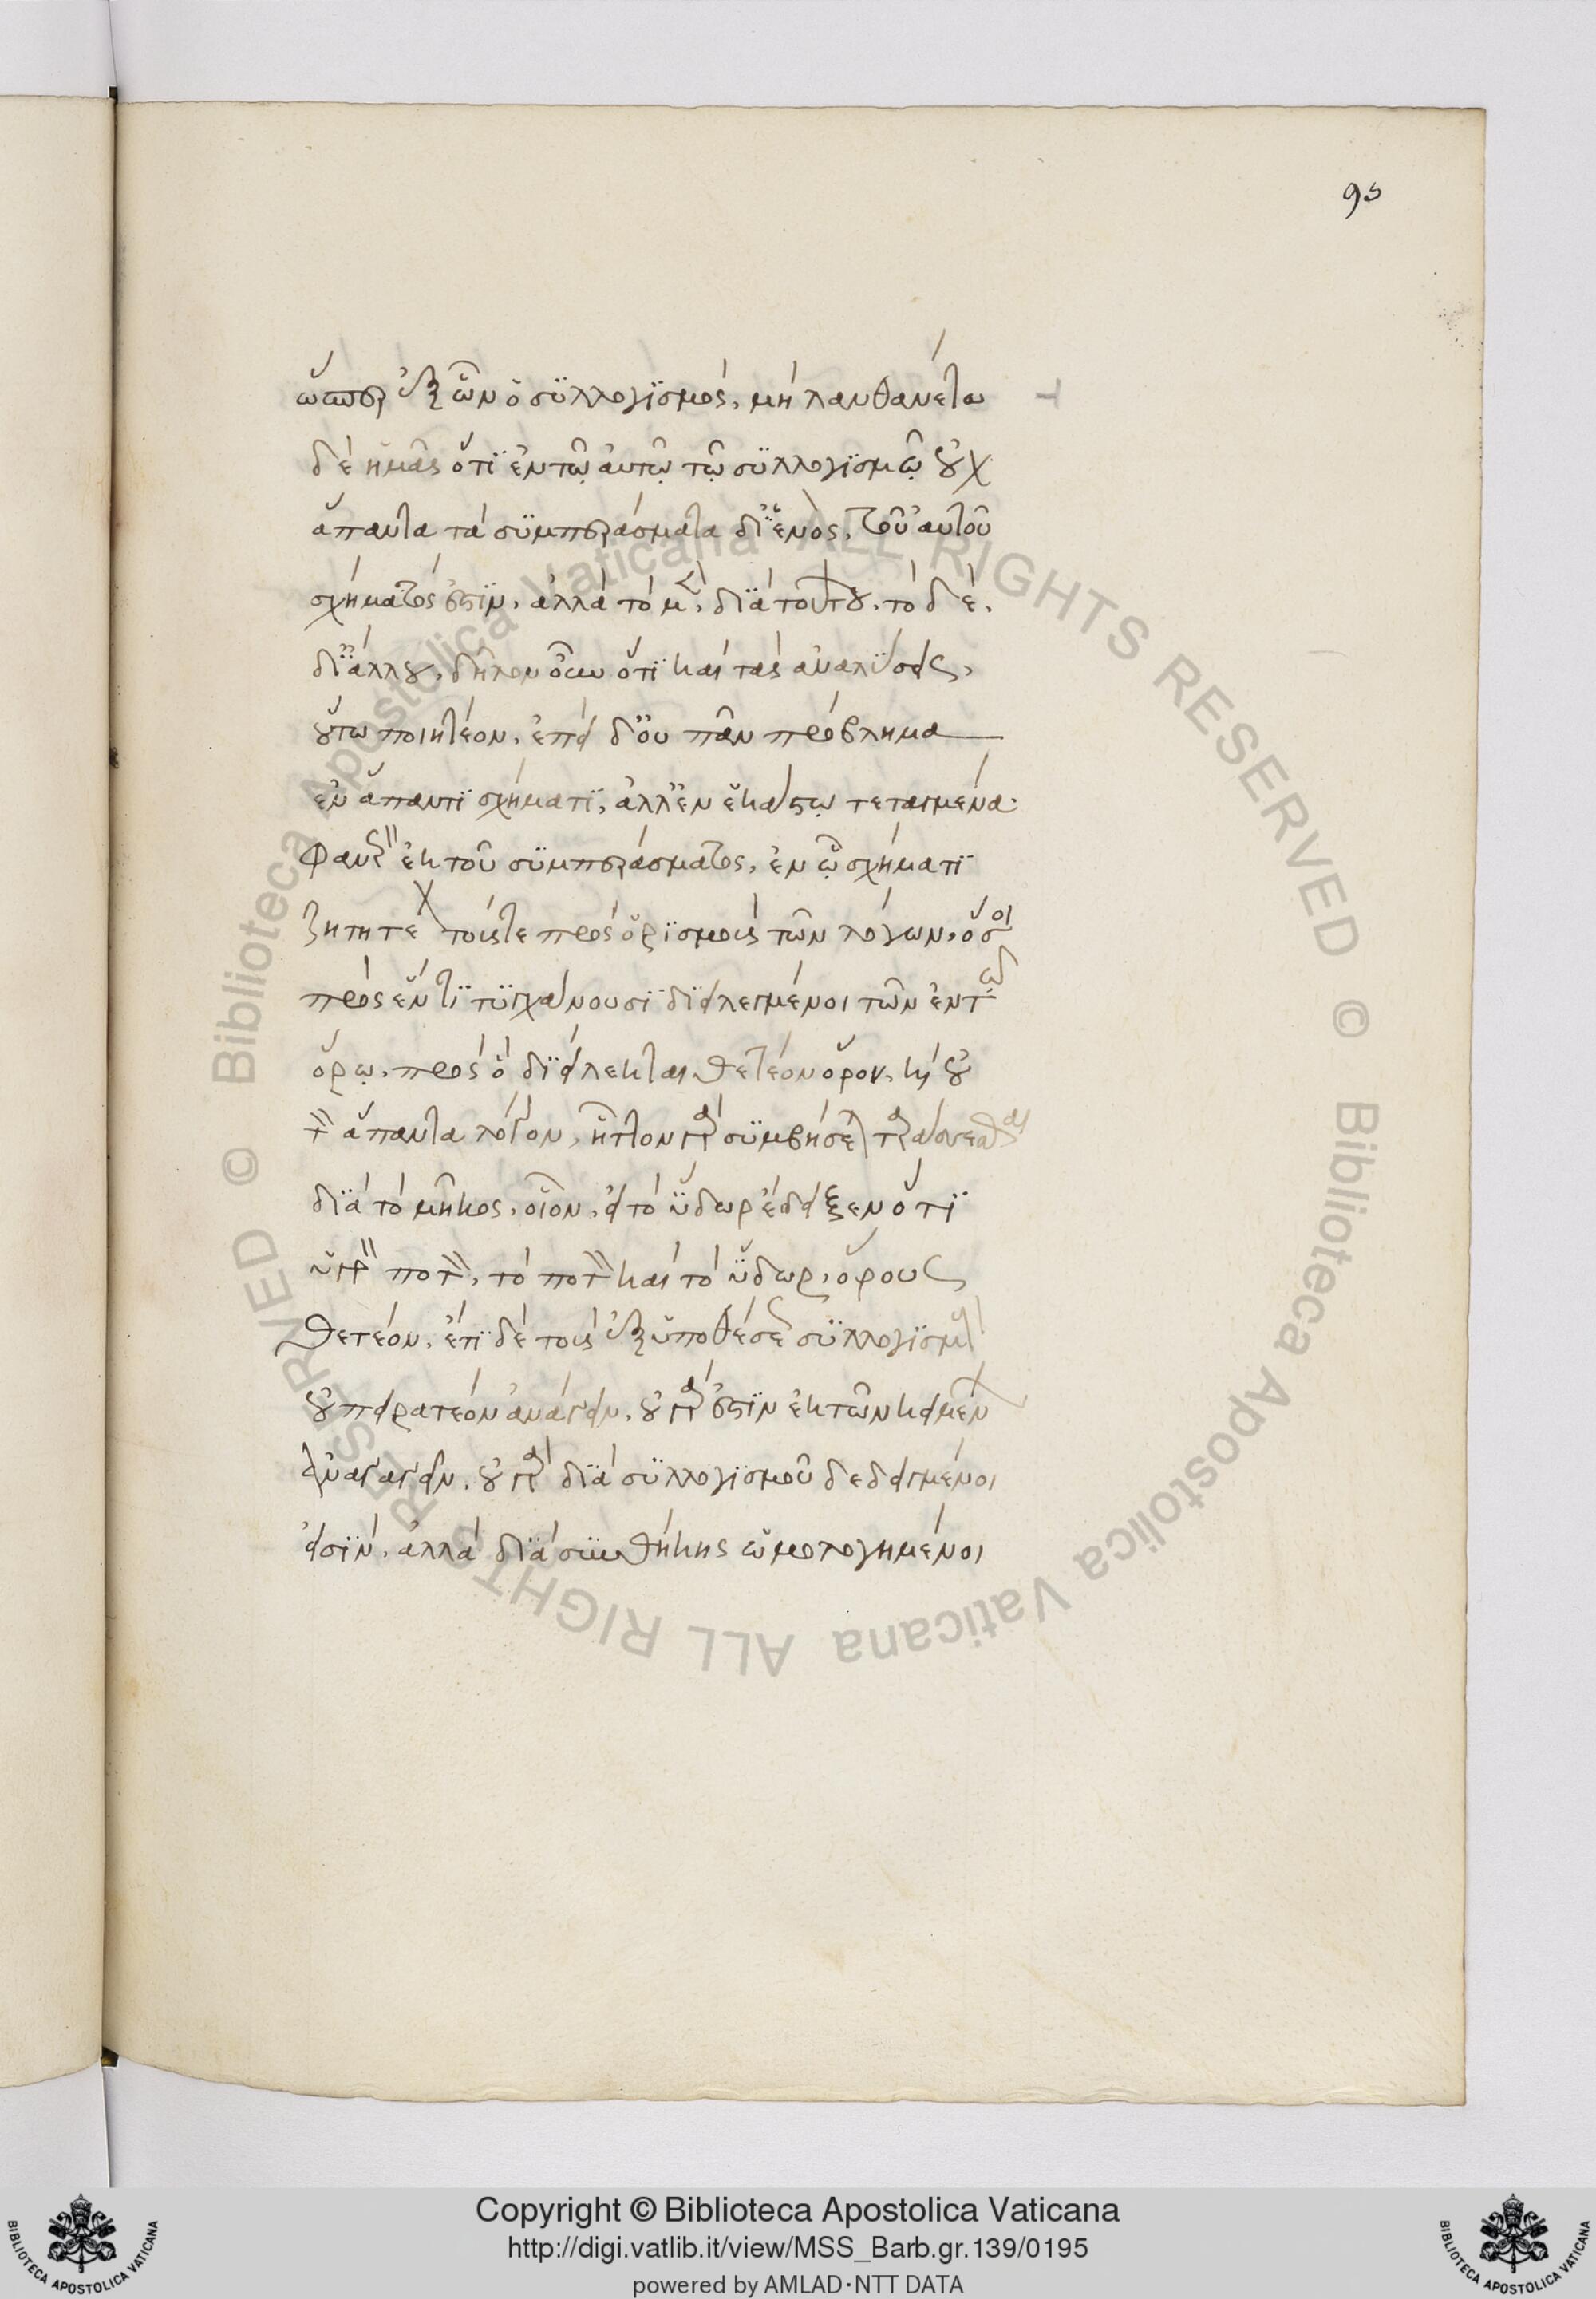 95
ὥσπερ ἐξ ὧν ὁ συλλογισμός, μὴ λανθανέτω
δὲ ἡμᾶς ὅτι ἐν τῷ αὐτῷ τῷ συλλογισμῷ οὐχ
ἅπαντα τὰ συμπεράσματα δι' ἑνὸς, τοῦ αὐτοῦ
σχήματός ἐστιν. ἀλλὰ τὸ μὲν, διὰ τούτου. τὸ δὲ,
δι' ἄλλου. δῆλον οὖν ὅτι καὶ τὰς ἀναλύσεις,
οὕτω ποιητέον. ἐπεὶ δ' οὐ πᾶν πρόβλημα
ἐν ἅπαντι σχήματι, ἀλλ' ἐν ἑκάστῳ τεταγμένα·
φανερὸν ἐκ τοῦ συμπεράσματος, ἐν ᾧ σχήματι
ζητητέον τούς τε πρὸς ὁρισμοὺς τῶν λόγων, ὅσοι
πρὸς ἕν τι τυγχάνουσι διειλεγμένοι τῶν ἐν τῷ
ὅρῳ, πρὸς ὃ διείλεκται θετέον ὅρον, καὶ οὐ
τὸν ἅπαντα λόγον, ἧττον γὰρ συμβήσεται ταράττεσθαι
διὰ τὸ μῆκος, οἷον, εἰ τὸ ὕδωρ ἔδειξεν ὅτι
ὑγρὸν ποτόν, τὸ ποτὸν καὶ τὸ ὕδωρ, ὅρους
θετέον. ἔτι δὲ τοὺς ἐξ ὑποθέσεως συλλογισμοὺς
οὐ πειρατέον ἀνάγειν. οὐ γάρ ἐστιν ἐκ τῶν κειμένων
ἀνάγειν. οὐ γὰρ διὰ συλλογισμοῦ δεδειγμένοι
εἰσὶν, ἀλλὰ διὰ συνθήκης ὡμολογημένοι
Copyright © Biblioteca Apostolica Vaticana
http://digi.vatlib.it/view/MSS_Barb.gr.139/0195
powered by AMLAD·NTT DATA